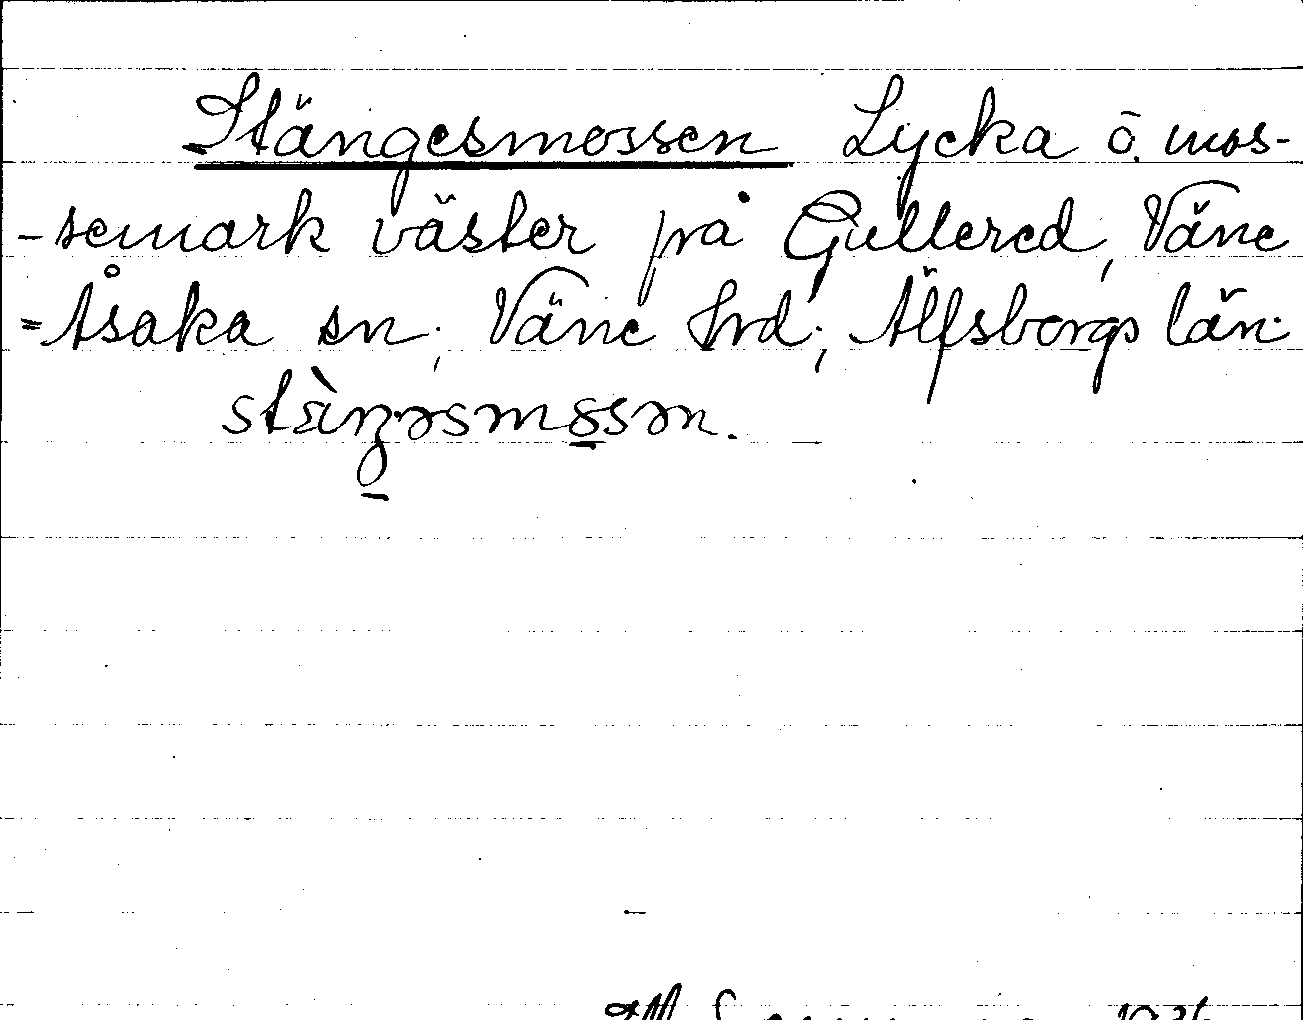 Stängesmossen Lycka o. mos-
-semark väster på Gullered, Väne
=Åsaka sn, Väne hrd, Älfsborgs län.
stàŋəsmosən.